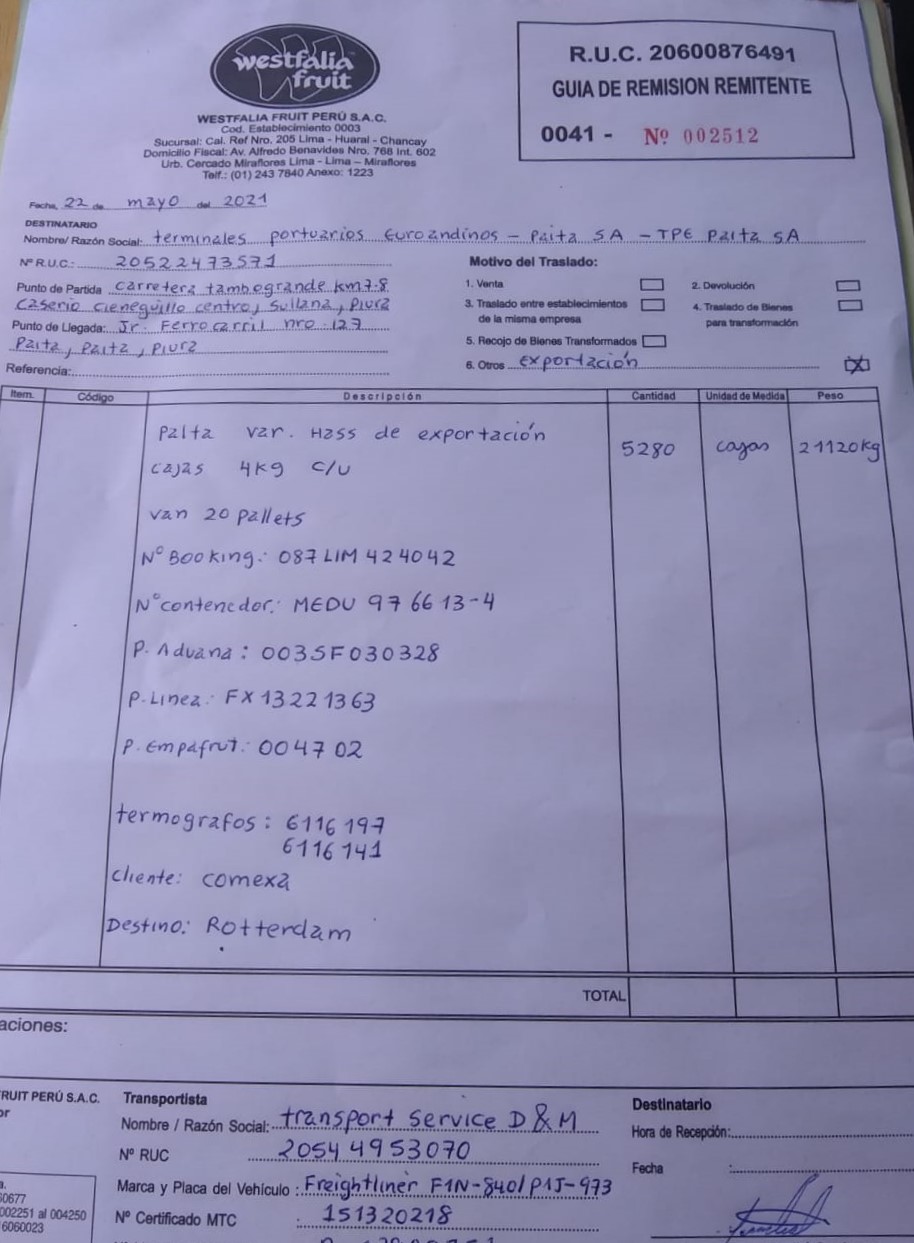 westfalia
fruit
WESTFALIA FRUIT PERÚ S.A.C.
Cod. Establecimiento 0003
Sucursal: Cal. Ref Nro. 205 Lima - Huaral - Chancay
Domicilio Fiscal: Av. Alfredo Benavides Nro. 768 Int. 602
Urb. Cercado Miraflores Lima - Lima - Miraflores
Telf.: (01) 243 7840 Anexo: 1223
R.U.C. 20600876491
GUIA DE REMISION REMITENTE
0041 - Nº 002512
Fecha, 22 de mayo del 2021
DESTINATARIO
Nombre/ Razón Social: terminales portuarios Euroandinos - Paita SA - TPE Paita SA
Nº R.U.C.: 20522473571
Punto de Partida carretera tambogrande km7.8
Caserio cieneguillo centro, Sullana, Piura
Punto de Llegada: Jr. Ferrocarril nro 127
Paita, Paita, Piura
Referencia:
Motivo del Traslado:
1. Venta
2. Devolución
3. Traslado entre establecimientos
de la misma empresa
4. Traslado de Bienes
para transformación
5. Recojo de Bienes Transformados
6. Otros exportación X
Item. Código Descripción Cantidad Unidad de Medida Peso
Palta var. Hass de exportación 5280 cajas 21120kg
cajas 4kg c/u
van 20 pallets
Nº Booking: 087LIM424042
Nº contenedor: MEDU 976613-4
P. Aduana: 003SF030328
P. Linea: FX13221363
P. Empafrut: 004702
termografos: 6116197
6116141
cliente: comexa
Destino: Rotterdam
TOTAL
aciones:
FRUIT PERÚ S.A.C.
or
60677
002251 al 004250
6060023
Transportista
Nombre / Razón Social: transport service D&M
Nº RUC 20544953070
Marca y Placa del Vehículo: Freightliner F1N-840/P1J-973
Nº Certificado MTC 151320218
Destinatario
Hora de Recepción:
Fecha :